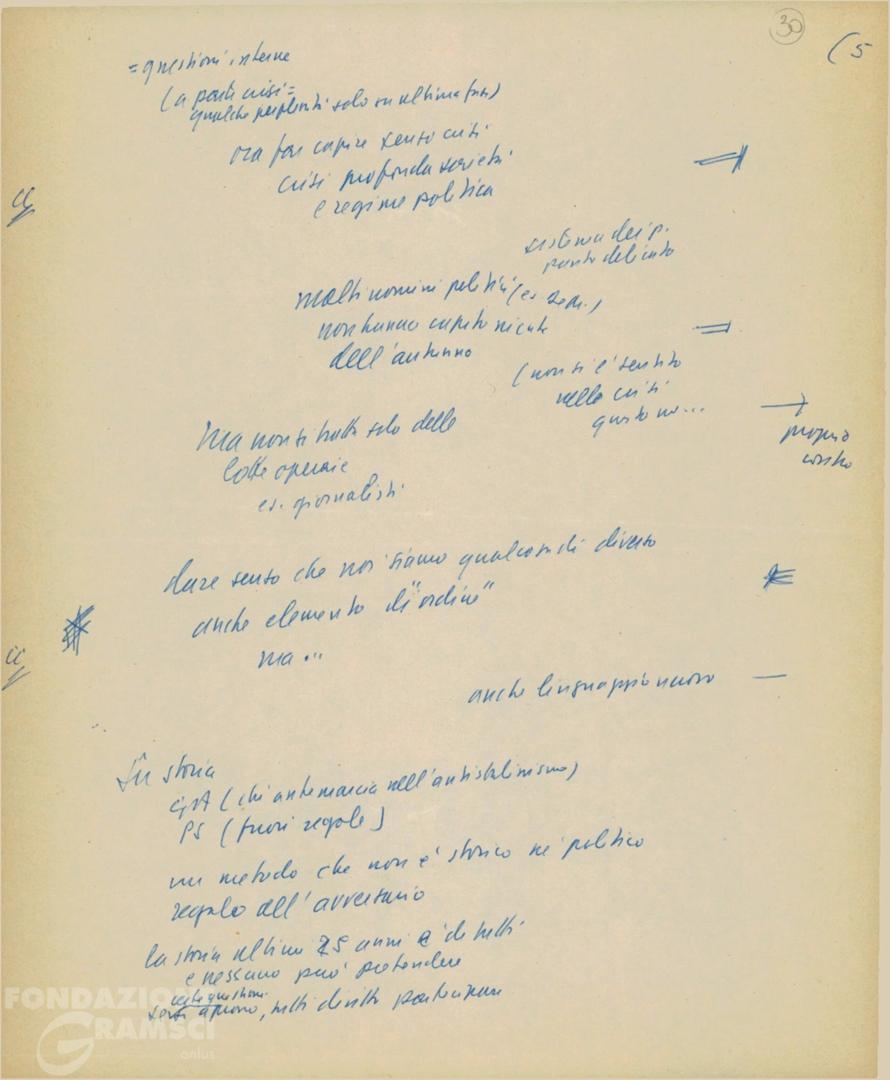 30
(5
= questioni interne
(a parte crisi =
qualche perplessità solo su ultima fase)
ora far capire senso crisi
crisi profonda società
e regime politico
sistema dei p.
punto delicato
molti uomini politici (es.
non hanno capito niente
dell'autunno
(non si è sentito
nella crisi
questo no...
proprio
Ma non si tratta solo delle
lotte operaie
es. giornalisti
dare senso che noi siamo qualcosa di diverso
anche elemento di "ordine"
ma...
anche linguaggio nuovo
Su storia
(chi antemarcia nell'antistalinismo)
PS (fuori regole)
un metodo che non è storico né politico
regalo all'avversario
la storia ultimi 25 anni è di tutti
e nessuno può pretendere
certe questioni
se si aprono, tutti diritto partecipare
FONDAZIONE
GRAMSCI
onlus